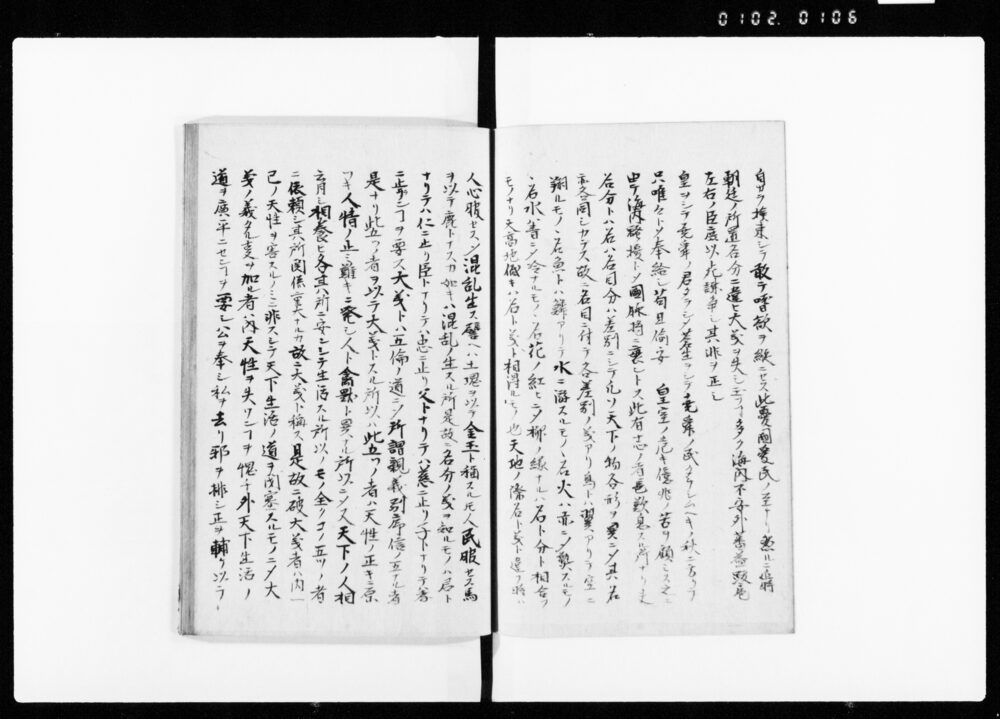 0102.0106
自カラ検束シテ敢テ嗜欲ヲ縦ニセス此憂國愛民ノ至ナリ然ルニ近時
朝廷ノ所置名分ニ違ヒ大義ヲ失シ海内不安外蕃
左右ノ臣庶以テ諌争シ其非ヲ正シ
皇ヲシテ堯舜ノ君タラシメ蒼生ヲシテ堯舜ノ民タラシムヘキノ秋ニ當ツテ
只唯々トシテ奉給シ苟且偷安 皇室ノ危キ億兆ノ苦ヲ顧ミス之ニ
由テ海内路撥トシテ國脉将ニ衰ヘントス此有志ノ者長歎息スル所ナリ夫
名分トハ名ハ名目分ハ差別ニシテ凡ソ天下ノ物各形ヲ異ニシテ其ハ名
亦同シカラス故ニ名目ニ付テ各差別ノ義アリ鳥トハ翼アリテ空ニ
翔ルモノノ名魚トハ鱗アリテ水ニ游スルモノノ名火ハ赤ニシテ熱スルモノ
ノ名水ハ青ニシテ冷ナルモノノ名花ノ紅ヒニシテ柳ノ緑ナルハ名ト分ト相合フ
モノナリ天高地低キハ名ト義ト相得ルモノ也天地ノ際名ト義ト違フ時ハ
人心服セスシテ混乱生ス譬ヘハ土塊ヲ以テ金玉ト稱スルモ人民服セス馬
ヲ以テ鹿トナスカ如キハ混乱ノ生スル所是故ニ名分ノ義ヲ知ルモノハ君ト
ナリテハ仁ニ止リ臣トナリテハ忠ニ止リ父トナリテハ慈ニ止リ子トナリテハ孝
ニ止ルヿヲ要ス大義トハ五倫ノ道ニシテ所謂親義別序信五ナル者
是ナリ此五ツノ者ヲ以テ大義トスル所以ハ此五ツノ者ハ天性ノ正キニ原
ツキ人情ノ止ミ難キニ発シ人ト禽獣ト異ナル所以ニシテ又天下ノ人相
相養ヒ各其ハ所ニ安ンシテ生活スル所以ノモノ全クコノ五ツノ者
ニ依頼シ其所関係重大ナルカ故ニ大義ト稱ス是故ニ破大義者ハ内
己ノ天性ヲ害スルノミニ非スシテ天下生活ノ道ヲ閉塞スルモノニシテ大
義ノ義タル
ヲ知ル者ハ内天性ヲ失ハンヿヲ愧チ外天下生活ノ
道ヲ廣平ニセンヿヲ要シ公ヲ奉シ私ヲ去リ邪ヲ排シ正ヲ輔ケ以テ